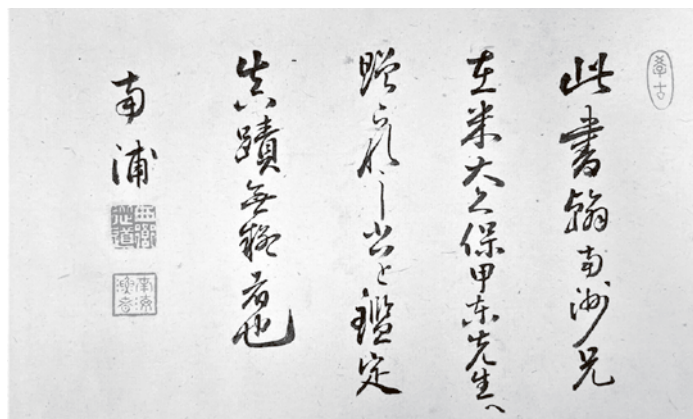 此書翰南洲兄
在米大久保甲東先生へ
贈られし と鑑定
真蹟無疑者也
南浦
西郷従道